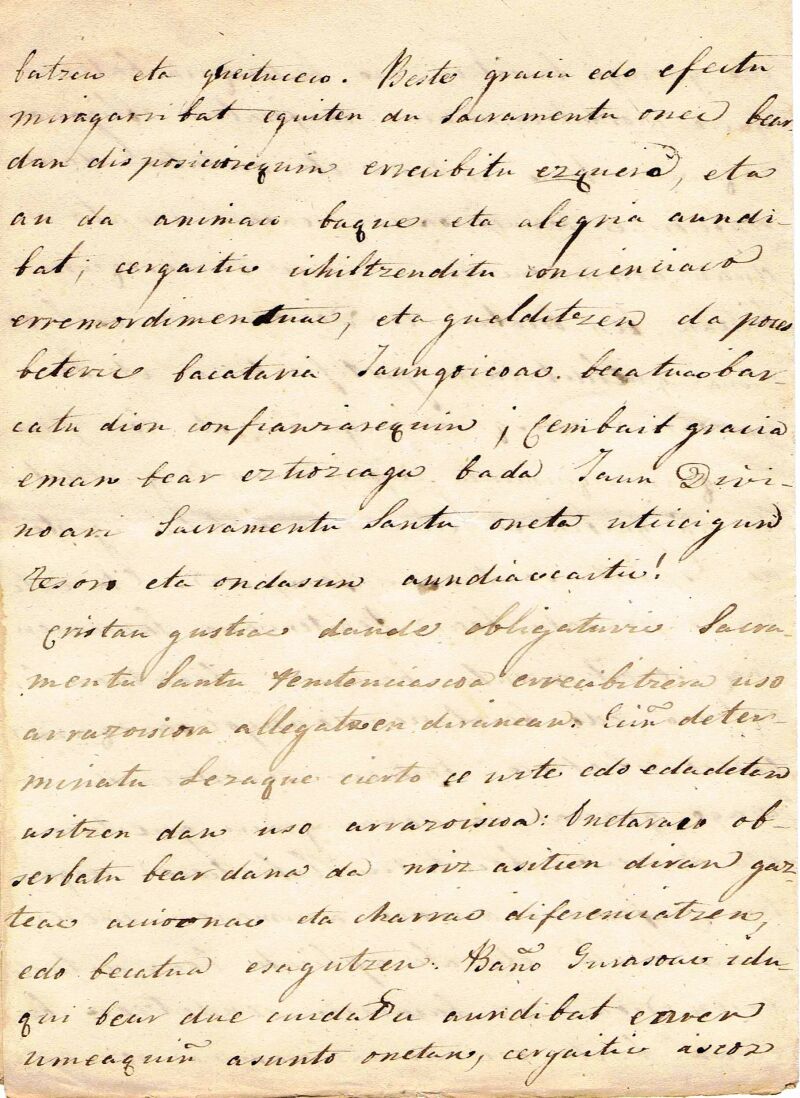 batzen eta gueituceco. Beste gracia edo efectu
miragarribat eguiten du Sacramentu onec bear
dan disposiciorequin errecibitu ezquero, eta
au da animaco baque eta alegria aundi-
bat; cergaitic ichiltzenditu concienciaco
erremordimentuac, eta gueldítzen da pocez
beteric bacataria Jaungoicoac becatuac bar-
catu dion confianziarequin ¡ Cembait gracia
eman bear eztiozcagu bada Jaun Divi-
noari Sacramentu Santu oneta uticigun
tesoro eta ondasun aundiaccaitic!
Cristau gustiac daude obligaturic Sacra-
mentu Santu Penitenciascoa errecibitzera uso
arrazoiscora allegatzen diranean. Eciñ deter-
minatu lezaque cierto ce urte edo edadetan
asitzen dan uso arrazoiscoa: Onetaraco ob-
serbatu bear dana da noiz asitzen diran gaz-
teac accio onac eta charrac diferenciatzen,
edo becatua esagutzen. Baño Gurasoac idu-
qui bear due cuidadu aundibat euren
umeaquiñ asunto onetan, cergaitic ascoz